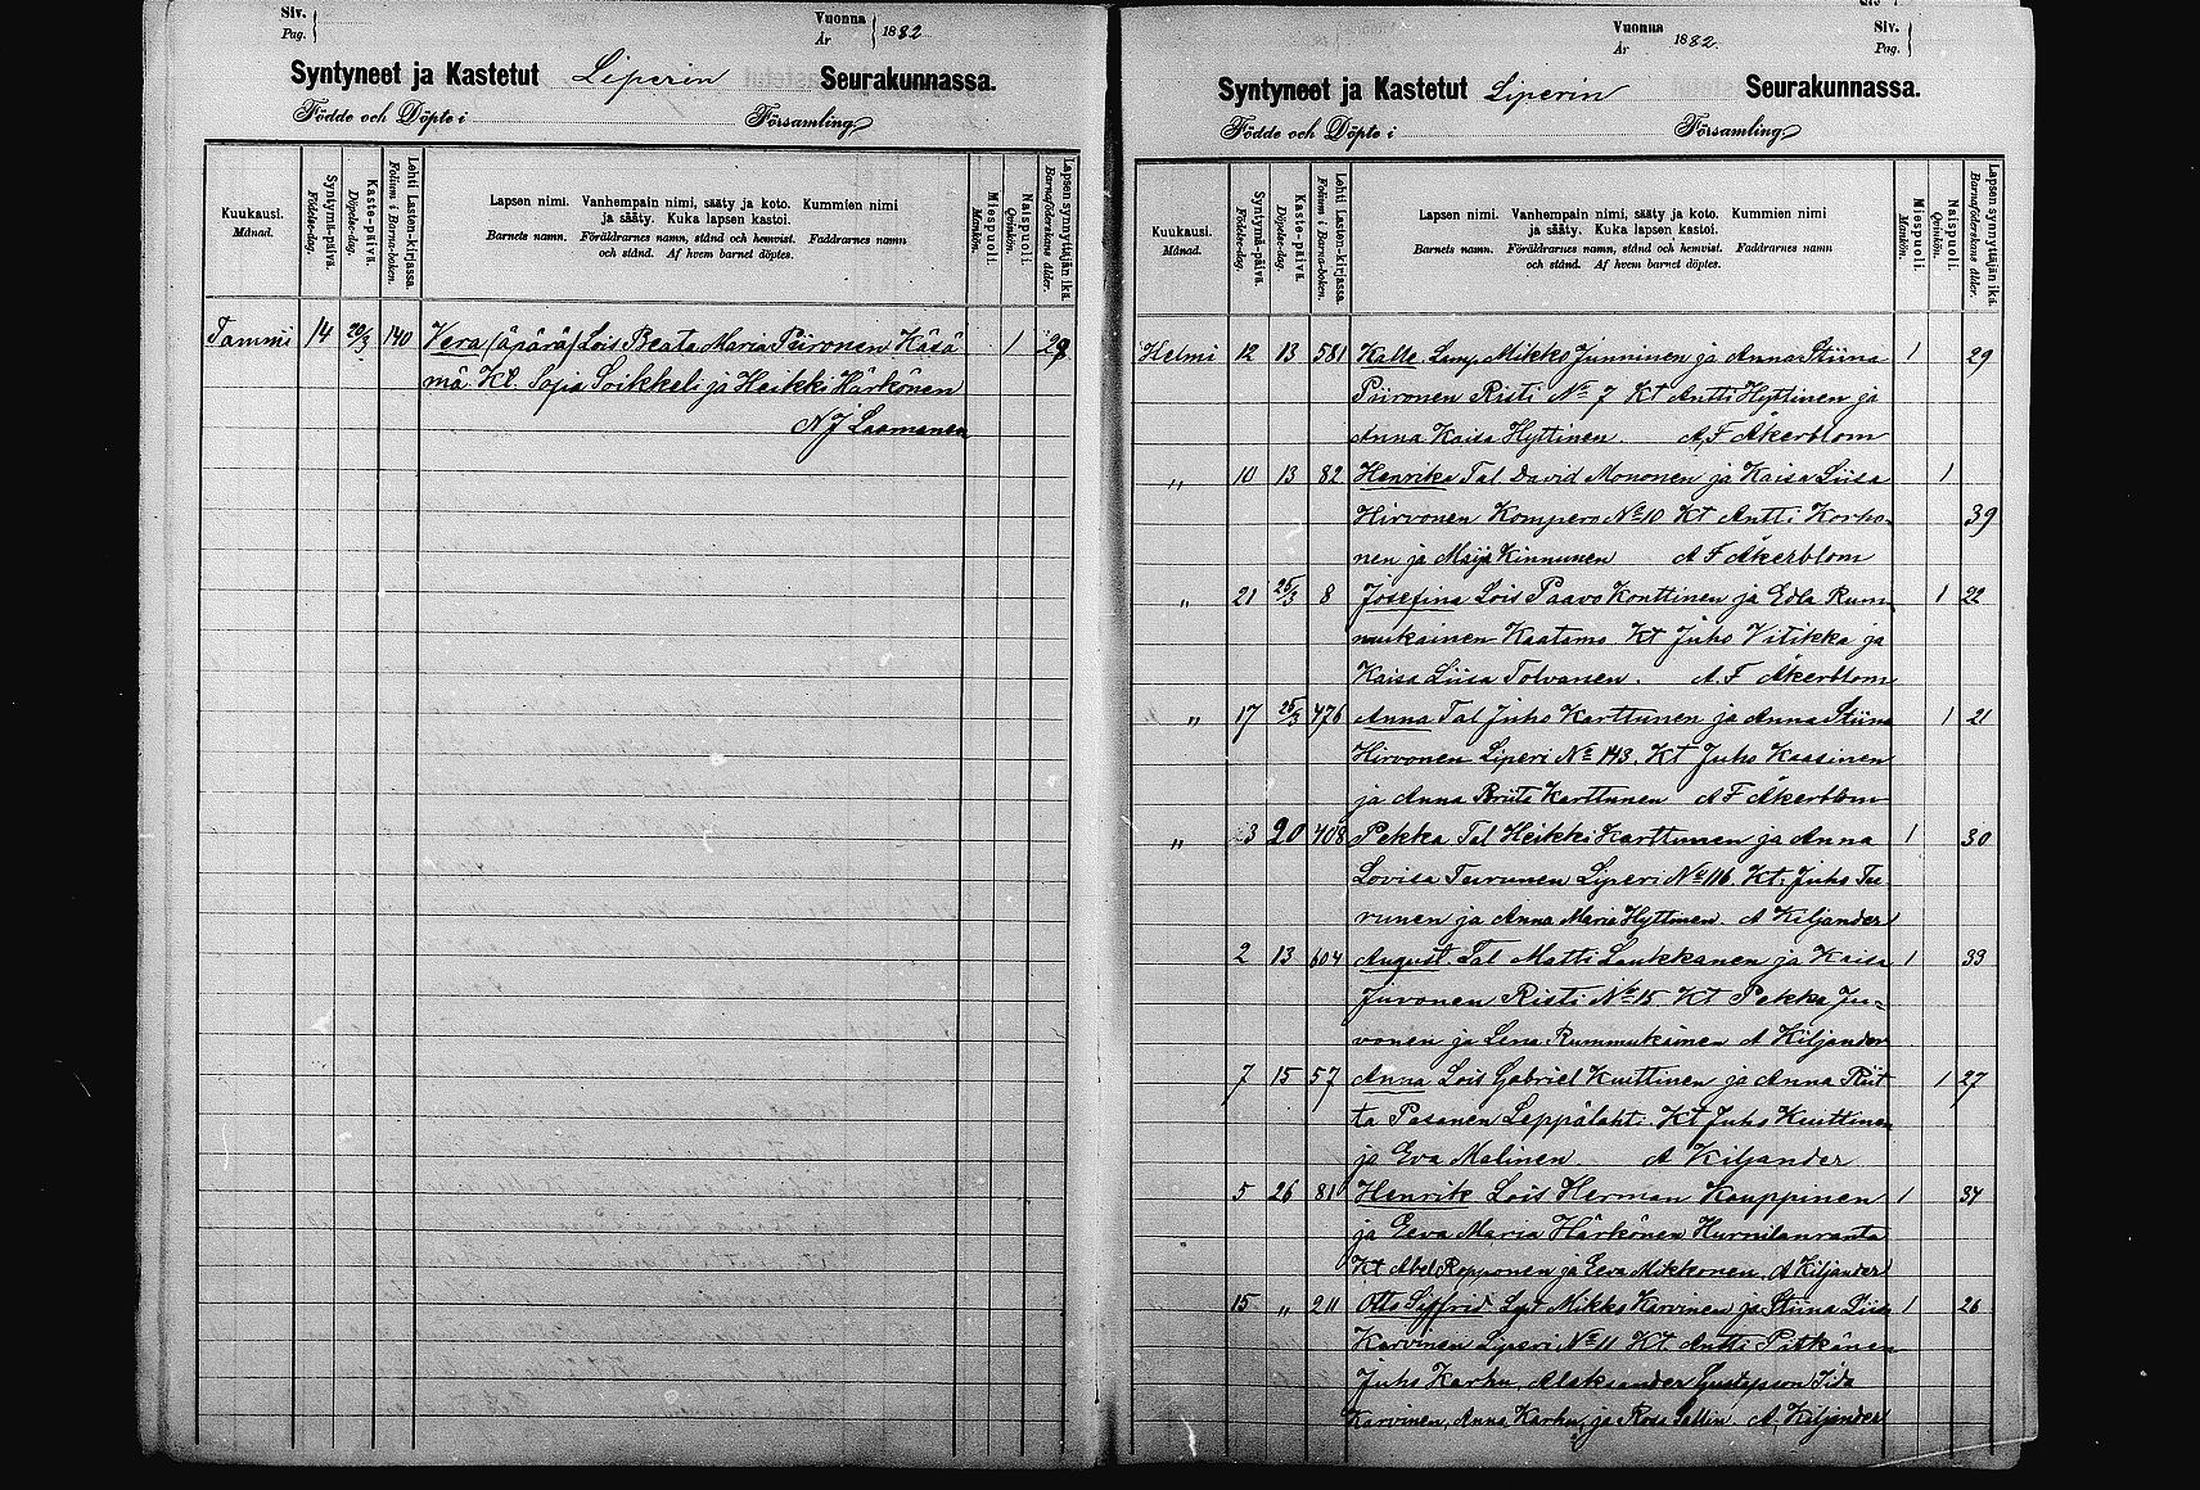 Siv.
Pag.
Vuonna
År
1882
Syntyneet ja Kastetut Liperin Seurakunnassa.
Födde och Döpte i Församling
Kuukausi.
Månad.
Syntymä-päivä.
Födelse-dag.
Kaste-päivä.
Döpelse-dag.
Lehti Lasten-kirjassa.
Folium i Barna-boken.
Lapsen nimi. Vanhempain nimi, sääty ja koto. Kummien nimi
ja sääty. Kuka lapsen kastoi.
Barnets namn. Föräldrarnes namn, stånd och hemvist. Faddrarnes namn
och stånd. Af hvem barnet döptes.
Miespuoli.
Mankön.
Naispuoli.
Qvinkön.
Lapsen synnyttäjän ikä.
Barnaföderskans ålder.
Tammi 14 20/3 140 Vera (äpärä) Lois Beata Maria Piironen Käsä 1 29
mä. Kt. Sofia Soikkeli ja Heikki Härkönen
N J Laamanen
Vuonna
År
1882.
Siv.
Pag.
Syntyneet ja Kastetut Liperin Seurakunnassa.
Födde och Döpte i Församling
Kuukausi.
Månad.
Syntymä-päivä.
Födelse-dag.
Kaste-päivä.
Döpelse-dag.
Lehti Lasten-kirjassa.
Folium i Barna-boken.
Lapsen nimi. Vanhempain nimi, sääty ja koto. Kummien nimi
ja sääty. Kuka lapsen kastoi.
Barnets namn. Föräldrarnes namn, stånd och hemvist. Faddrarnes namn
och stånd. Af hvem barnet döptes.
Miespuoli.
Mankön.
Naispuoli.
Qvinkön.
Lapsen synnyttäjän ikä.
Barnaföderskans ålder.
Helmi 12 13 581 Kalle. Lamp. Mikko Junninen ja Anna Stiina 1 29
Piironen Risti No 7 Kt Antti Hyttinen ja
Anna Kaisa Hyttinen. A. F Åkerblom
" 10 13 82 Henrika Tal. David Mononen ja Kaisa Liisa 1
Hirvonen Kompero No 10 Kt Antti Korho- 39
nen ja Maija Kinnunen A F Åkerblom
" 21 25/3 8 Josefina Lois Paavo Konttinen ja Edla Rum 1 22
mukainen Kaatamo. Kt Juho Vitikka ja
Kaisa Liisa Tolvanen. A. F Åkerblom
" 17 25/3 476 Anna Tal Juho Karttunen ja Anna Stiina 1 21
Hirvonen Liperi No 143. Kt Juho Kaasinen
ja Anna Briita Karttunen A F Åkerblom
" 3 20 408 Pekka Tal Heikki Karttunen ja Anna 1 30
Lovisa Turunen Liperi No 116. Kt. Juho Tu
runen ja Anna Maria Hyttinen. A Kiljander
2 13 604 August. Tal Matti Laukkanen ja Kaisa 1 33
Juvonen Risti No 15 Kt Pekka Ju-
vonen ja Lena Rummukainen A Kiljander
7 15 57 Anna Lois Gabriel Kuittinen ja Anna Riit 1 27
ta Pasanen Leppälahti. Kt Juho Kuittinen
ja Eva Malinen. A Kiljander
5 26 81 Henrik Lois Herman Kauppinen 1 34
ja Eeva Maria Härkönen Hurnilanranta
Kt Abel Ropponen ja Eeva Mikkonen. A Kiljander
15 " 211 Otto Siffrid Mikko Karvinen ja Stiina Liisa 1 26
Karvinen Liperi No 11 Kt. Antti Pitkänen
Juho Karhu, Aleksander Gustafson Iida
Karvinen, Anna Karhu, ja Rosa Sallin A. Kiljander